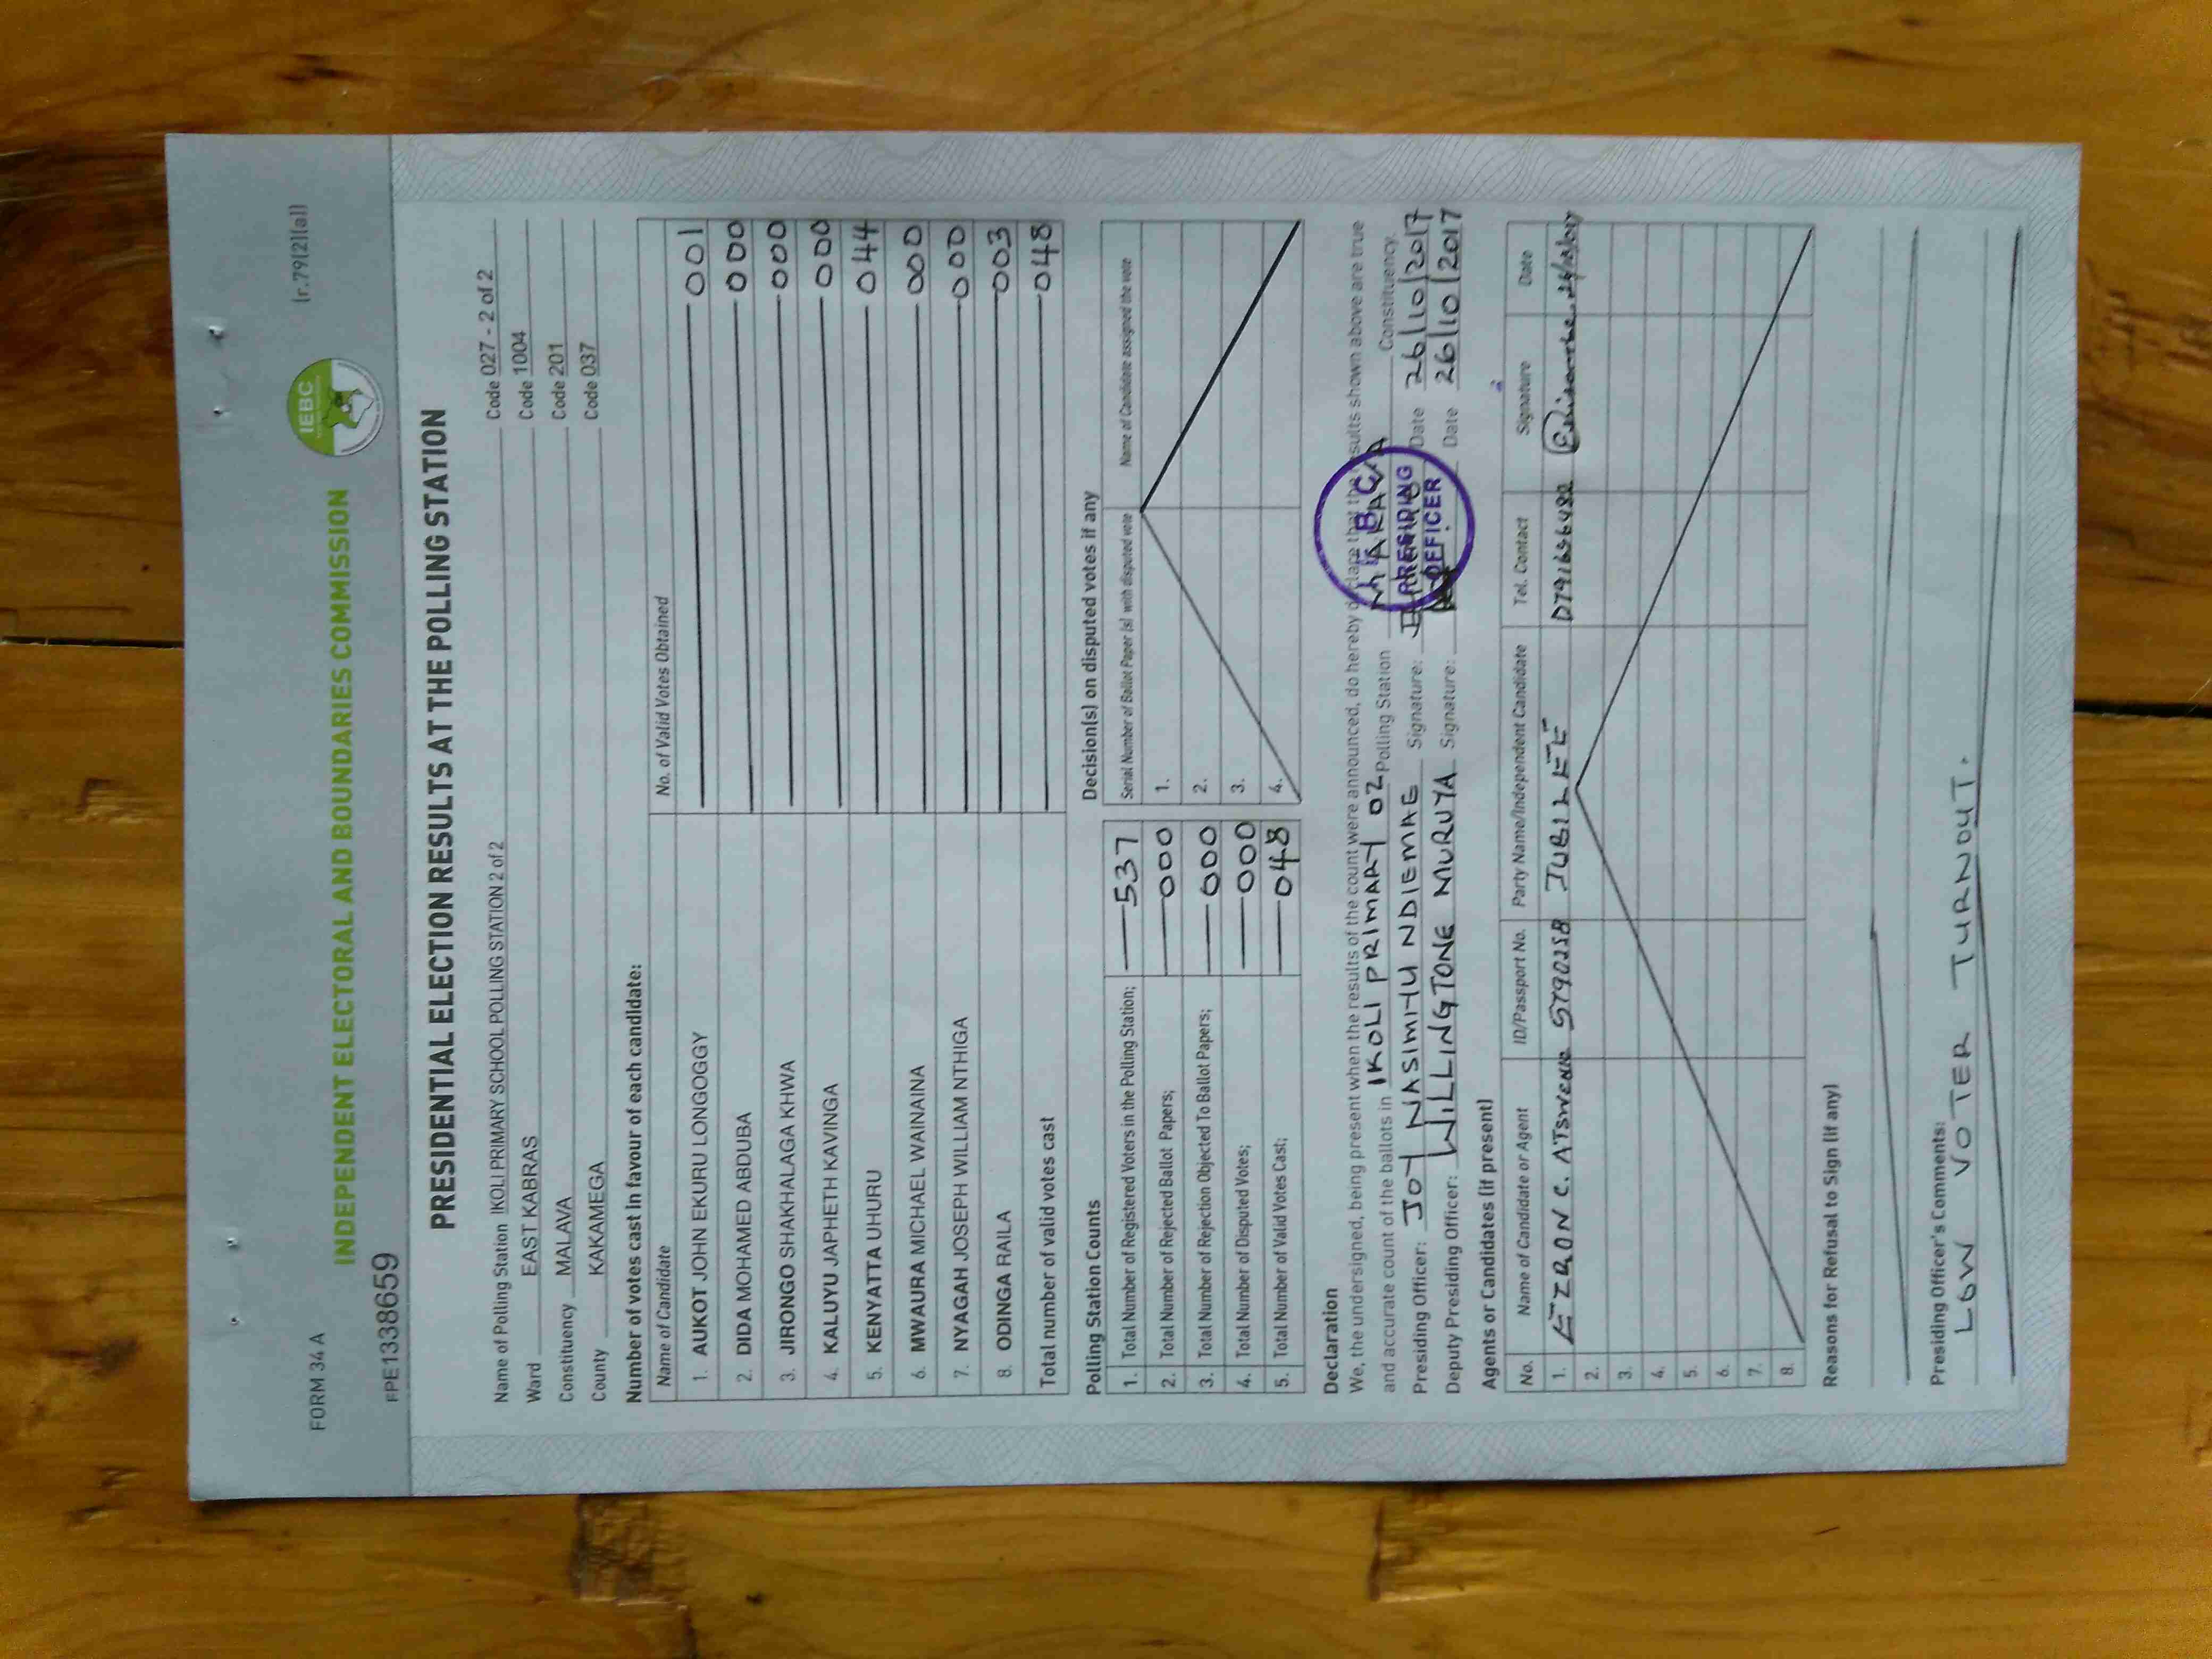 FORM 34 A
(r.79(2)(a))
INDEPENDENT ELECTORAL AND BOUNDARIES COMMISSION
IEBC
FPE1338659
PRESIDENTIAL ELECTION RESULTS AT THE POLLING STATION
Name of Polling Station IKOLI PRIMARY SCHOOL POLLING STATION 2 of 2 Code 027 - 2 of 2
Ward EAST KABRAS Code 1004
Constituency MALAVA Code 201
County KAKAMEGA Code 037
Number of votes cast in favour of each candidate:
Name of Candidate No. of Valid Votes Obtained
1. AUKOT JOHN EKURU LONGOGGY 001
2. DIDA MOHAMED ABDUBA 000
3. JIRONGO SHAKHALAGA KHWA 000
4. KALUYU JAPHETH KAVINGA 000
5. KENYATTA UHURU 044
6. MWAURA MICHAEL WAINAINA 000
7. NYAGAH JOSEPH WILLIAM NTHIGA 000
8. ODINGA RAILA 003
Total number of valid votes cast 048
Polling Station Counts
1. Total Number of Registered Voters in the Polling Station; 537
2. Total Number of Rejected Ballot Papers; 000
3. Total Number of Rejection Objected To Ballot Papers; 000
4. Total Number of Disputed Votes; 000
5. Total Number of Valid Votes Cast; 048
Decision(s) on disputed votes if any
Serial Number of Ballot Paper (s) with disputed vote Name of Candidate assigned the vote
1.
2.
3.
4.
Declaration
We, the undersigned, being present when the results of the count were announced, do hereby declare that the results shown above are true
and accurate count of the ballots in IKOLI PRIMARY 02 Polling Station MALAVA Constituency.
Presiding Officer: JOY NASIMIYU NDIEMAE Signature: Date 26/10/2017
Deputy Presiding Officer: WILLINGTONE MURUYA Signature: Date 26/10/2017
IEBC
PRESIDING
OFFICER
Agents or Candidates (if present)
No. Name of Candidate or Agent ID/Passport No. Party Name/Independent Candidate Tel. Contact Signature Date
1. EZRON C. 5790258 JUBILEE 0791656482 26/10/2017
2.
3.
4.
5.
6.
7.
8.
Reasons for Refusal to Sign (if any)
Presiding Officer's Comments:
LOW VOTER TURNOUT.